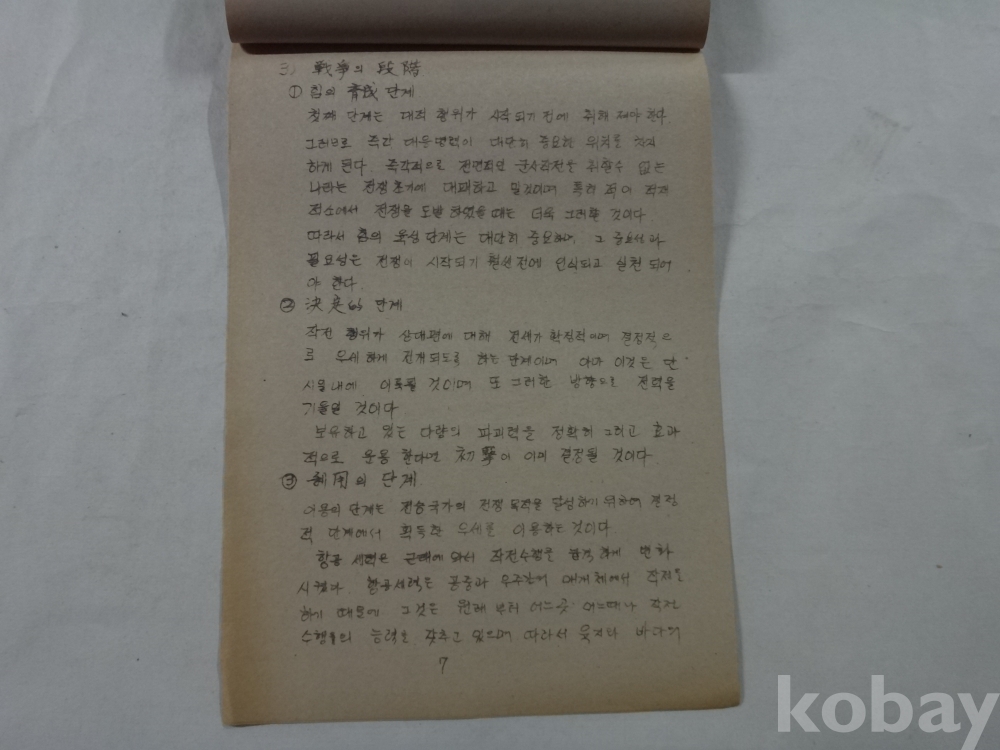 3) 戰爭의 段階
① 힘의 育成 단계
첫째 단계는 대적 행위가 시작되기 전에 취해 져야 한다.
그러므로 즉각 대응병력이 대단히 중요한 위치를 차지
하게 된다. 즉각적으로 전면적인 군사작전을 취할수 없는
나라는 전쟁초기에 대패하고 말것이며 특히 적이 적재
적소에서 전쟁을 도발 하였을 때는 더욱 그러할 것이다.
따라서 힘의 육성 단계는 대단히 중요하며, 그 중요성과
필요성은 전쟁이 시작되기 훨씬전에 인식되고 실천 되어
야 한다.
② 決定的 단계
작전 행위가 상대편에 대해 전세가 확정적이며 결정적으
로 우세 하게 전개되도록 하는 단계이며 아마 이것은 단
시일내에 이룩될 것이며 또 그러한 방향으로 전력을
기울일 것이다
보유하고 있는 다량의 파괴력을 정확히 그리고 효과
적으로 운용 한다면 初擊에 이미 결정될 것이다.
③ 利用의 단계
이용의 단계는 전승국가의 전쟁 목적을 달성하기 위하여 결정
적 단계에서 획득한 우세를 이용하는 것이다
항공 세력은 근대에 와서 작전수행을 급격 하게 변화
시켰다. 항공세력은 공중과 우주간의 매개체에서 작전을
하기 때문에 그것은 원래 부터 어느곳 어느때나 작전
수행의 능력을 갖추고 있으며 따라서 육지나 바다의
7
kobay